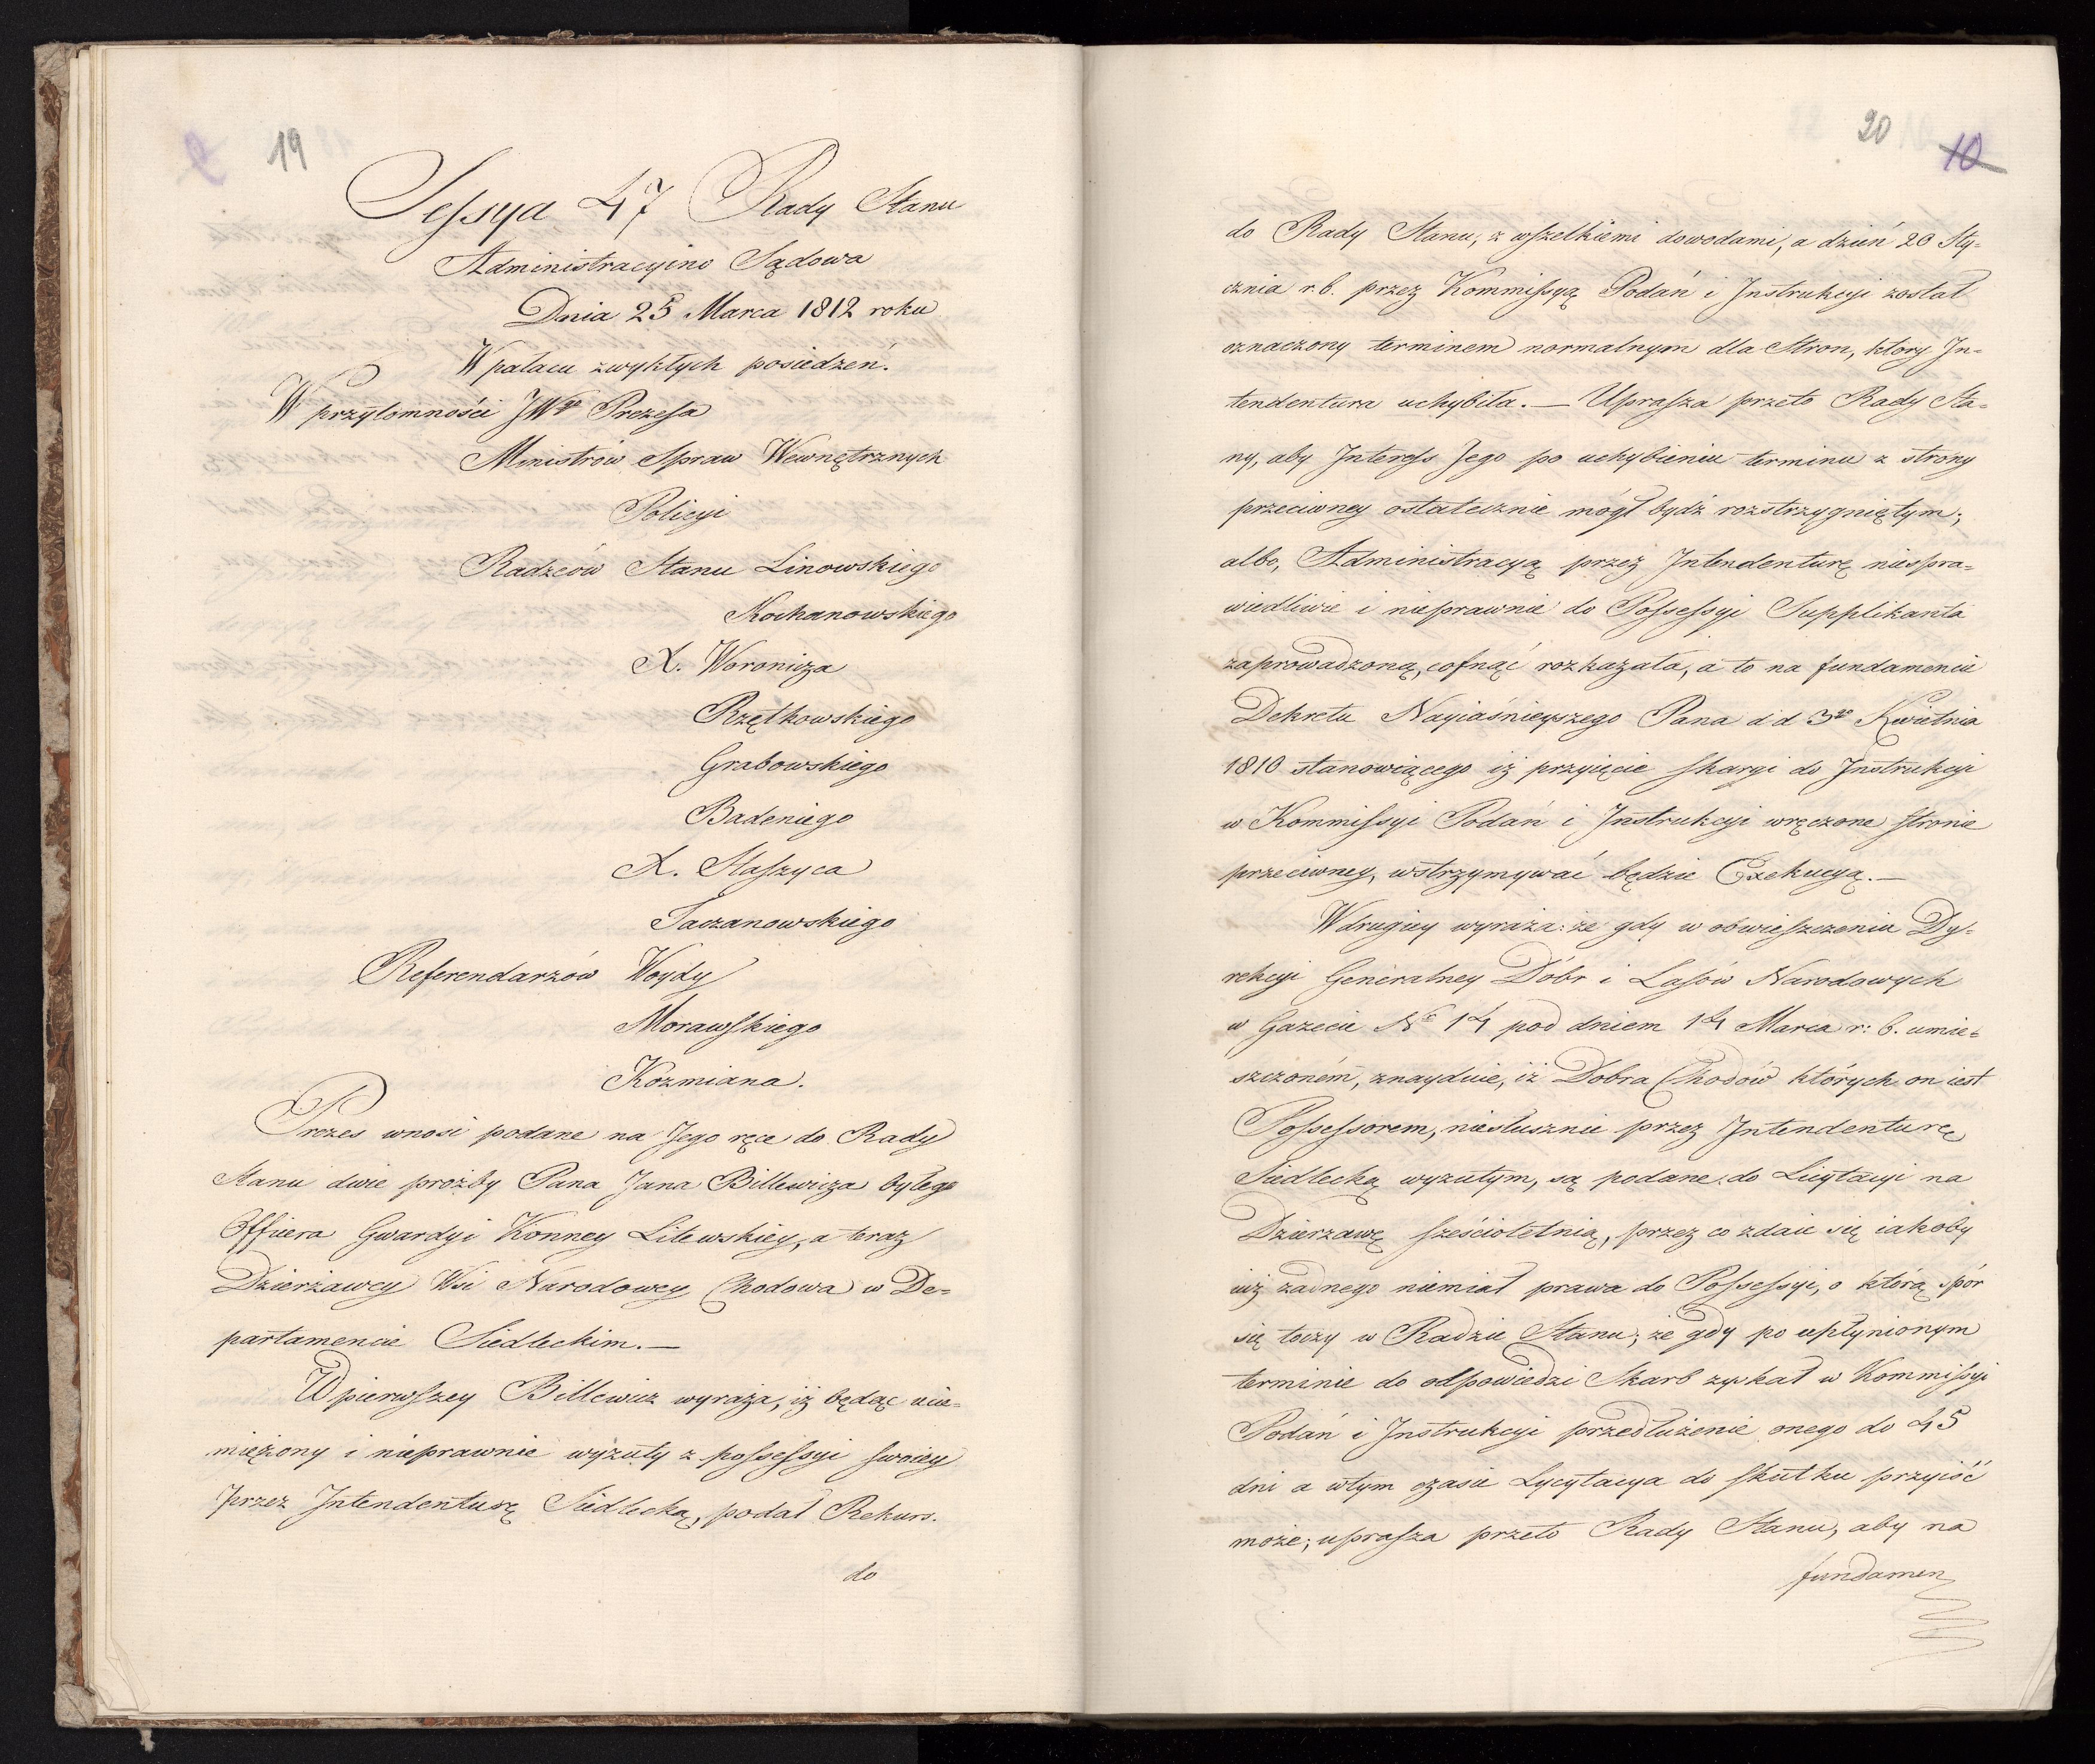 19
Sessya 47 Rady Stanu
Administracyino Sądowa
Dnia 25 Marca 1812 roku
W pałacu zwykłych posiedzeń.
W przytomności JWgo Prezesa
Ministrów Spraw Wewnętrznych
Policyi
Radzców Stanu Linowskiego
Kochanowskiego
X. Woronicza
Rzętkowskiego
Grabowskiego
Badeniego
X. Staszyca
Taczanowskiego
Referendarzów Woydy
Morawskiego
Kozmiana.
Prezes wnosi podane na Jego ręce do Rady
Stanu dwie prozby Pana Jana Billewicza byłego
Officera Gwardyi Konney Litewskiey, a teraz
Dzierżawcy Wsi Narodowey Chodowa w De=
partamencie Siedleckim.—
W pierwszey Billewicz wyraża, iż będąc ucie=
miężony i nieprawnie wyzuty z possessyi swoiey
przez Intendenturę Siedlecką, podał Rekurs.
do
20
10
do Rady Stanu, z wszelkiemi dowodami, a dzień 20 Sty=
cznia r. b. przez Kommissyą Podań i Instrukcyi został
oznaczony terminem normalnym dla Stron, ktory In=
tendentura uchybiła.— Uprasza przeto Rady Sta=
ny, aby Interess Jego po uchybieniu terminu z strony
przeciwney ostatecznie mógł bydź rozstrzygniętym;
albo, Administracyą przez Intendenturę niespra=
wiedliwie i nieprawnie do Possessyi Supplikanta
zaprowadzoną, cofnąć rozkazała, a to na fundamencie
Dekretu Nayiaśnieyszego Pana d d 3go Kwietnia
1810 stanowiącego iż przyięcie skargi do Instrukcyi
w Kommissyi Podań i Instrukcyi wręczone stronie
przeciwney, wstrzymywać będzie Exekucyą.—
W drugiey wyraża: że gdy w obwieszczeniu Dy=
rekcyi Generalney Dóbr i Lasów Narodowych
w Gazecie No 14 pod dniem 14 Marca r: b. umie=
szczoném, znayduie, iż Dobra Chodów których on iest
Possessorem, niesłusznie przez Intendenturę
Siedlecką wyzutym, są podane do Licytacyi na
Dzierzawę sześcioletnią, przez co zdaie się iakoby
iuż żadnego niemiał prawa do Possessyi, o którą spór
się toczy w Radzie Stanu; że gdy po upłynionym
terminie do odpowiedzi Skarb zyskał w Kommissyi
Podań i Instrukcyi przedłużenie onego do 45
dni a wtym czasie Lycytacya do skutku przyiść
może; uprasza przeto Rady Stanu, aby na
fundamen